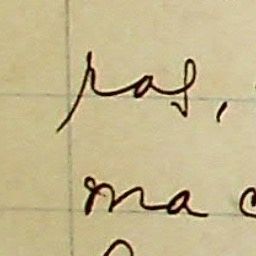 ras,
ma